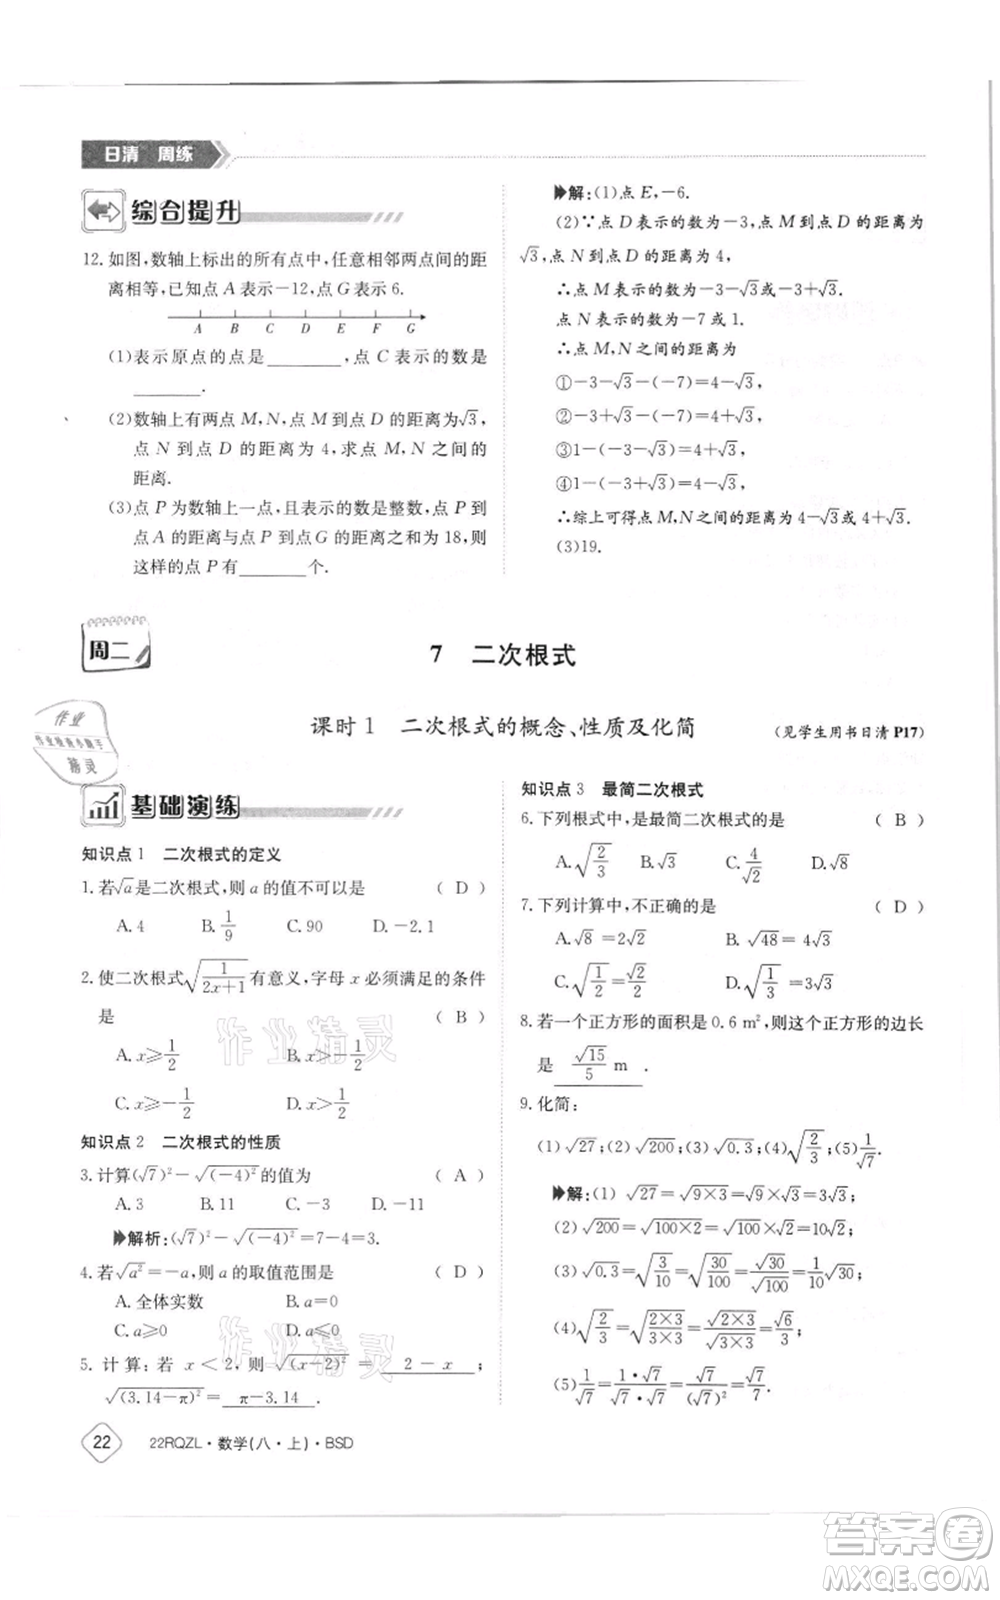 日清 周练
综合提升
12. 如图,数轴上标出的所有点中,任意相邻两点间的距
离相等,已知点 A 表示-12,点 G 表示 6.
A B C D E F G
(1)表示原点的点是______,点 C 表示的数是
______.
(2)数轴上有两点 M,N,点 M 到点 D 的距离为√3,
点 N 到点 D 的距离为 4,求点 M,N 之间的
距离.
(3)点 P 为数轴上一点,且表示的数是整数,点 P 到
点A 的距离与点 P 到点G 的距离之和为 18,则
这样的点 P 有______个.
解:(1)点 E,-6.
(2)∵点 D 表示的数为-3,点 M 到点D 的距离为
√3,点 N 到点D 的距离为 4,
∴点 M 表示的数为-3-√3或-3+√3,
点 N 表示的数为-7 或 1.
∴点 M,N 之间的距离为
①-3-√3-(-7)=4-√3,
②-3+√3-(-7)=4+√3,
③1-(-3-√3)=4+√3,
④1-(-3+√3)=4-√3,
∴综上可得点 M,N 之间的距离为 4-√3或4+√3.
(3)19.
周二
7 二次根式
课时 1 二次根式的概念、性质及化简
(见学生用书日清 P17)
作业
作业检查小助手
精灵
基础演练
知识点 1 二次根式的定义
1. 若√a是二次根式,则 a 的值不可以是 ( D )
A. 4 B. 1/9 C. 90 D. -2.1
2. 使二次根式√(1/(2x+1))有意义,字母 x 必须满足的条件
是 ( B )
A. x≥1/2 B. x>-1/2
C. x≥-1/2 D. x>1/2
知识点 2 二次根式的性质
3. 计算(√7)²-√((-4)²)的值为 ( A )
A. 3 B. 11 C. -3 D. -11
解析:(√7)²-√((-4)²)=7-4=3.
4. 若√(a²)=-a,则 a 的取值范围是 ( D )
A. 全体实数 B. a=0
C. a≥0 D. a≤0
5. 计算:若 x<2,则 √((x-2)²) = 2-x ;
√((3.14-π)²)= π-3.14 .
知识点 3 最简二次根式
6. 下列根式中,是最简二次根式的是 ( B )
A. √(2/3) B. √3 C. 4/√2 D. √8
7. 下列计算中,不正确的是 ( D )
A. √8=2√2 B. √48=4√3
C. √(1/2)=√2/2 D. √(1/3)=√3
8. 若一个正方形的面积是 0.6 m²,则这个正方形的边长
是 √15/5 m .
9. 化简:
(1)√27;(2)√200;(3)√0.3;(4)√(2/3);(5)1/√7.
解:(1)√27=√(9×3)=√9×√3=3√3;
(2)√200=√(100×2)=√100×√2=10√2;
(3)√0.3=√(3/10)=√(30/100)=√30/√100=1/10√30;
(4)√(2/3)=√((2×3)/(3×3))=√(2×3)/√(3×3)=√6/3;
(5)1/√7=(1·√7)/(√7·√7)=√7/(√7)²=√7/7.
作业精灵
作业精灵
22 22RQZL·数学(八·上)·BSD
答案卷
MXQE.COM